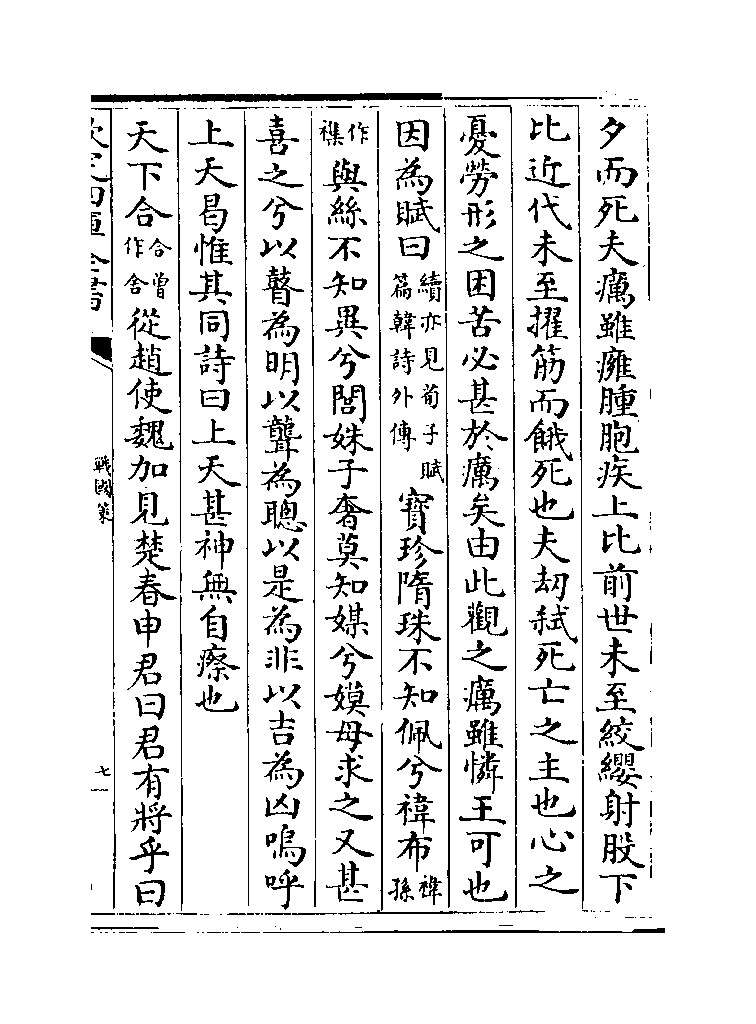 夕而死夫癘雖癰腫胞疾上比前世未至絞纓射股下
比近代未至擢筋而餓死也夫劫弑死亡之主也心之
憂勞形之困苦必甚於癘矣由此觀之癘雖憐王可也
因為賦曰續亦見荀子賦篇韓詩外傳寶珍隋珠不知佩兮褘布褘孫
作襍與絲不知異兮閭姝子奢莫知媒兮嫫母求之又甚
喜之兮以瞽為明以聾為聰以是為非以吉為凶嗚呼
上天曷惟其同詩曰上天甚神無自瘵也
天下合合曾作舍從趙使魏加見楚春申君曰君有將乎曰
欽定四庫全書
戰國策
七